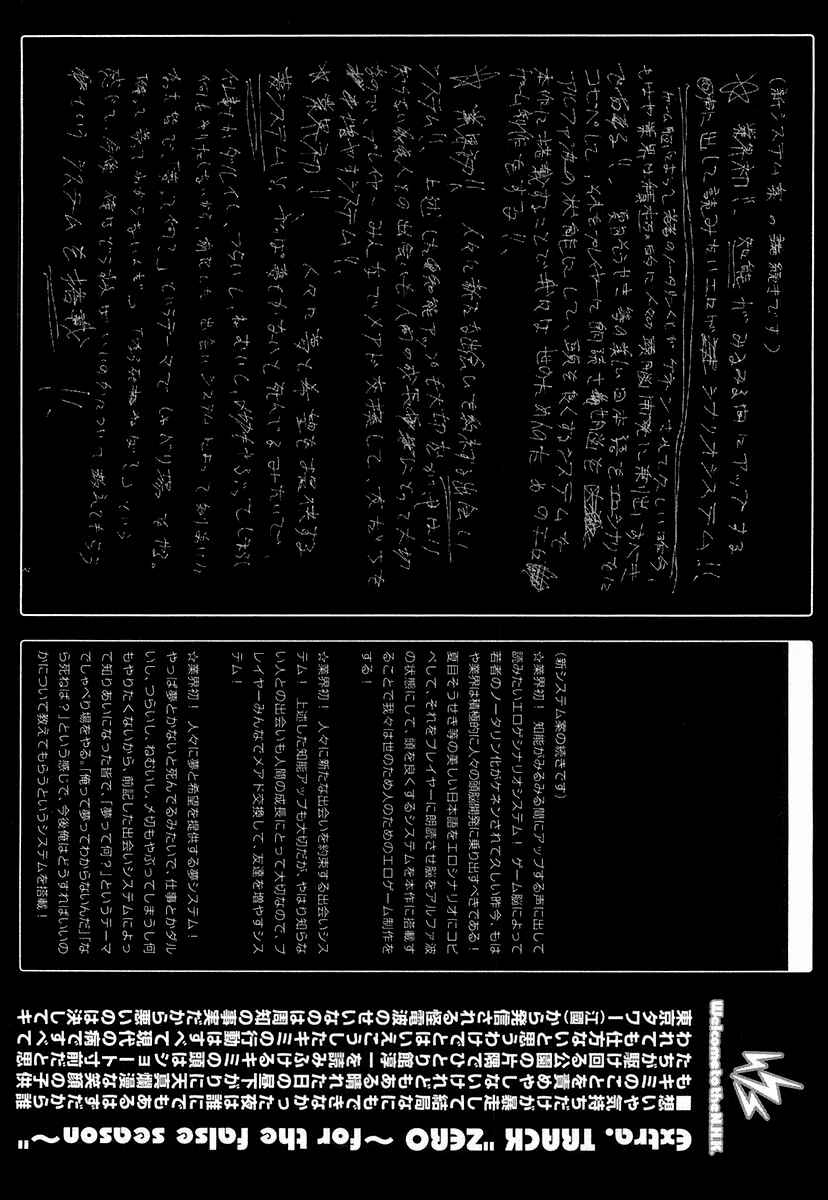 (新システム案の続きです)
☆業界初!! 知能がみるみる間にアップする
◎声に出して読みたいエロゲシナリオシステム!!
ゲーム脳によって若者のノータリン化がケネンされて久しい昨今、
もはや業界は積極的に人々の頭脳開発に乗り出すべき
である!! 夏目そうせき等の美しい日本語をエロシナリオに
コピペして、それをプレイヤーに朗読させ脳を
アルファ波の状態にして、頭を良くするシステムを
本作に搭載することで我々は世のため人のためのエロ
ゲーム制作をする!!
☆業界初!! 人々に新たな出会いを約束する出会い
システム!! 上述した知能アップも大切だが、やはり
知らない人との出会いも人間の成長にとって大切
なので、プレイヤーみんなでメアド交換して、友だちを
増やすシステム!!
☆業界初!! 人々に夢と希望を提供する
夢システム!! やっぱ夢とかないと死んでるみたいで、
仕事とかダルイし、つらいし、ねむいし、〆切もやぶってしまうし
何もやりたくないから、前記した出会いシステムによって知りあいに
なった皆で、「夢って何?」というテーマでしゃべり場をやる。
「俺って夢ってわからないんだ」「なら死ねば?」という
感じで、今後俺はどうすればいいのかについて教えてもらう
というシステムを搭載!!
(新システム案の続きです)
☆業界初! 知能がみるみる間にアップする声に出して
読みたいエロゲシナリオシステム! ゲーム脳によって
若者のノータリン化がケネンされて久しい昨今、もは
や業界は積極的に人々の頭脳開発に乗り出すべきである!
夏目そうせき等の美しい日本語をエロシナリオにコピ
ペして、それをプレイヤーに朗読させ脳をアルファ波
の状態にして、頭を良くするシステムを本作に搭載す
ることで我々は世のため人のためのエロゲーム制作を
する!
☆業界初! 人々に新たな出会いを約束する出会いシス
テム! 上述した知能アップも大切だが、やはり知らな
い人との出会いも人間の成長にとって大切なので、プ
レイヤーみんなでメアド交換して、友達を増やすシス
テム!
☆業界初! 人々に夢と希望を提供する夢システム!
やっぱ夢とかないと死んでるみたいで、仕事とかダル
いし、つらいし、ねむいし、〆切もやぶってしまうし何
もやりたくないから、前記した出会いシステムによっ
て知りあいになった皆で、「夢って何?」というテーマ
でしゃべり場をやる。「俺って夢ってわからないんだ」「な
ら死ねば?」という感じで、今後俺はどうすればいいの
かについて教えてもらうというシステムを搭載!
Welcome to the N.H.K.
Extra. TRACK "ZERO ～for the false season～"
■想いや気持ちだけが暴走して結局なにもできなかった夜は誰にでもあるはずだから誰
もキミのことを責めやしないけれどもある晴れた日の昼下がりに天真爛漫な笑顔の子供
たちが駆け回る公園の片隅でひとり館淳一を読みふけるキミの頭はショート寸前だと思
われても仕方ないと思うわけでとはいえこうしたキミの行動はすべて現代の病ですべて
東京タワー(江國)から発信される怪電波のせいなのは周知の事実だから悪いのは決してキ